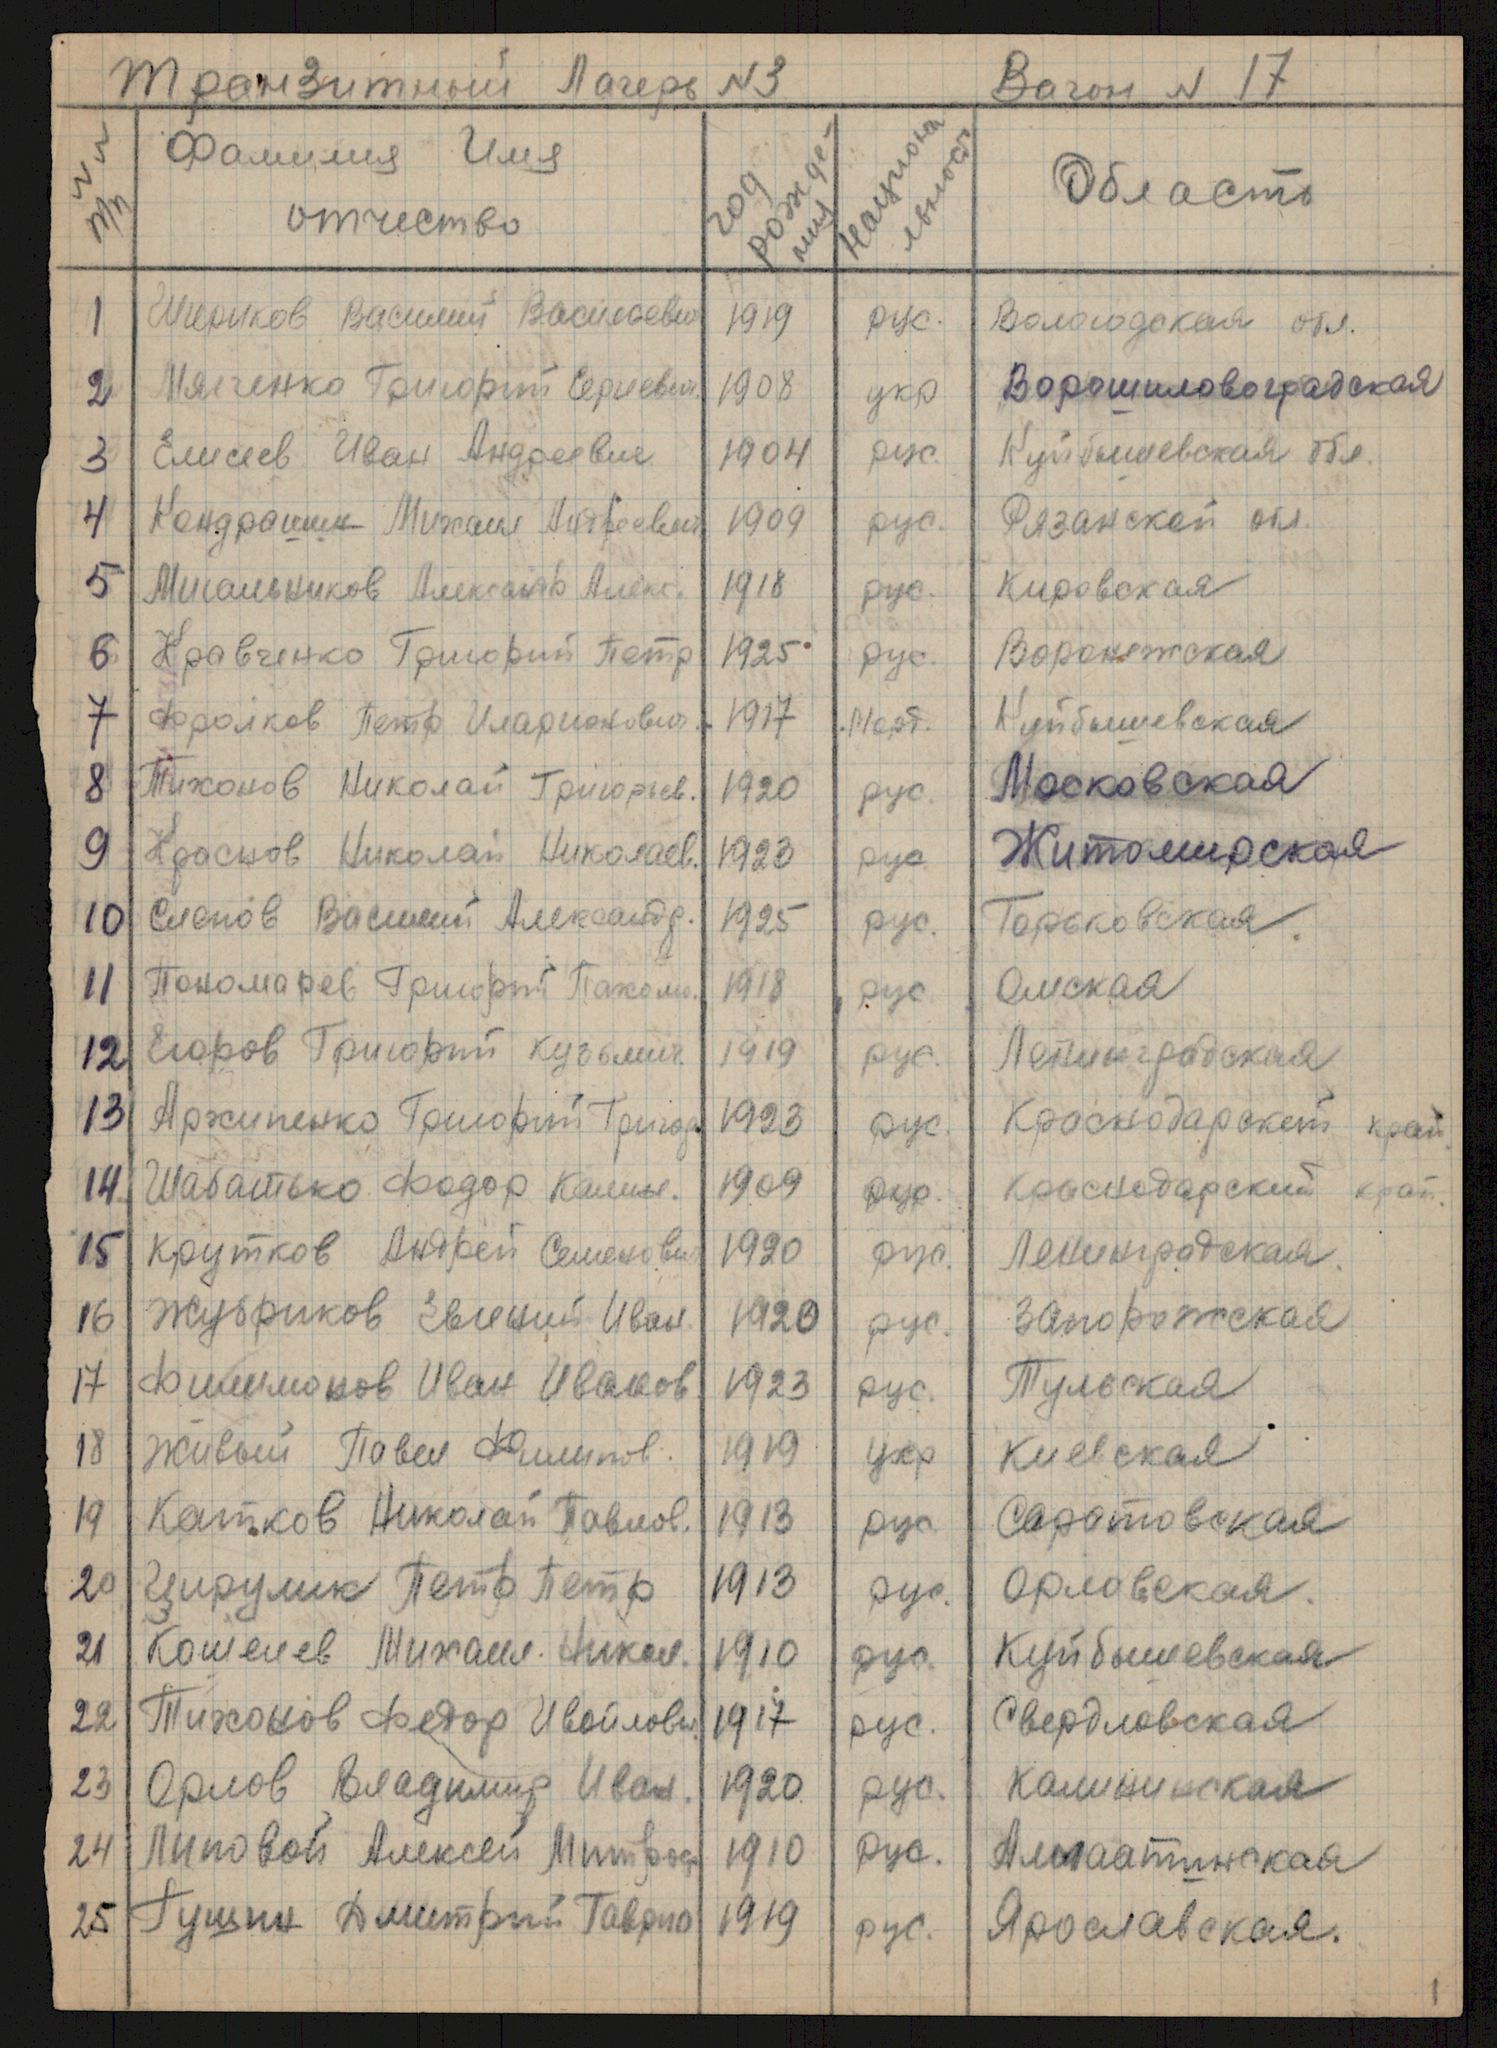 Транзитный Лагерь N3 Вагон N 17
NN п/п Фамилия Имя отчество год рождения Национальность Область
1 Шириков Василий Васильевич 1919 рус. Вологодская обл.
2 Мягченко Григорий Сергеевич. 1908 укр Ворошиловоградская
3 Елисеев Иван Андреевич 1904 рус. Куйбышевская обл.
4 Кондрашин Михаил Андреевич 1909 рус. Рязанской обл.
5 Мигальников Александр Алекс. 1918 рус. Кировская
6 Кравченко Григорий Петр 1925 рус. Воронежская
7 Фролков Петр Иларионович. 1917 Морд. Куйбышевская
8 Тихонов Николай Григорьев. 1920 рус. Московская
9 Краснов Николай Николаев. 1923 рус Житомирская
10 Слепов Василий Александр. 1925 рус. Горьковская.
11 Пономарев Григорий Пахом. 1918 рус Омская
12 Егоров Григорий Кузьмич 1919 рус. Ленинградская
13 Архипенко Григорий Григор. 1923 рус. Краснодарский край.
14 Шабатько Фодор Калин. 1909 рус. Краснодарский край.
15 Крутков Андрей Семенович 1920 рус. Ленинградская.
16 Жубриков Евгений Иван. 1920 рус. Запорожская
17 Филимонов Иван Иванов. 1923 рус. Тульская
18 Живый Павел Филипов. 1919 укр Киевская
19 Катков Николай Павлов. 1913 рус. Саратовская
20 Цирулик Петр Петр 1913 рус. Орловская.
21 Кошелев Михаил. Никол. 1910 рус. Куйбышевская
22 Тихонов Федор Ивойлович. 1917 рус. Свердловская
23 Орлов Владимир Иван. 1920 рус. Калининская
24 Липовой Алексей Митроф 1910 рус. Алмаатинская
25 Гущин Дмитрий Гаврило 1919 рус. Ярославская.
1